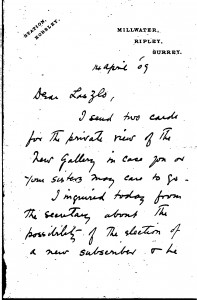 STATION,
HORSLEY.
MILLWATER,
RIPLEY,
SURREY.
24 April '09
Dear Laszlo,
I send two cards
for the private view of the
New Gallery in case you or
your sisters may care to go –
I inquired today from
the secretary about the
possibility of the election of
a new subscriber & he